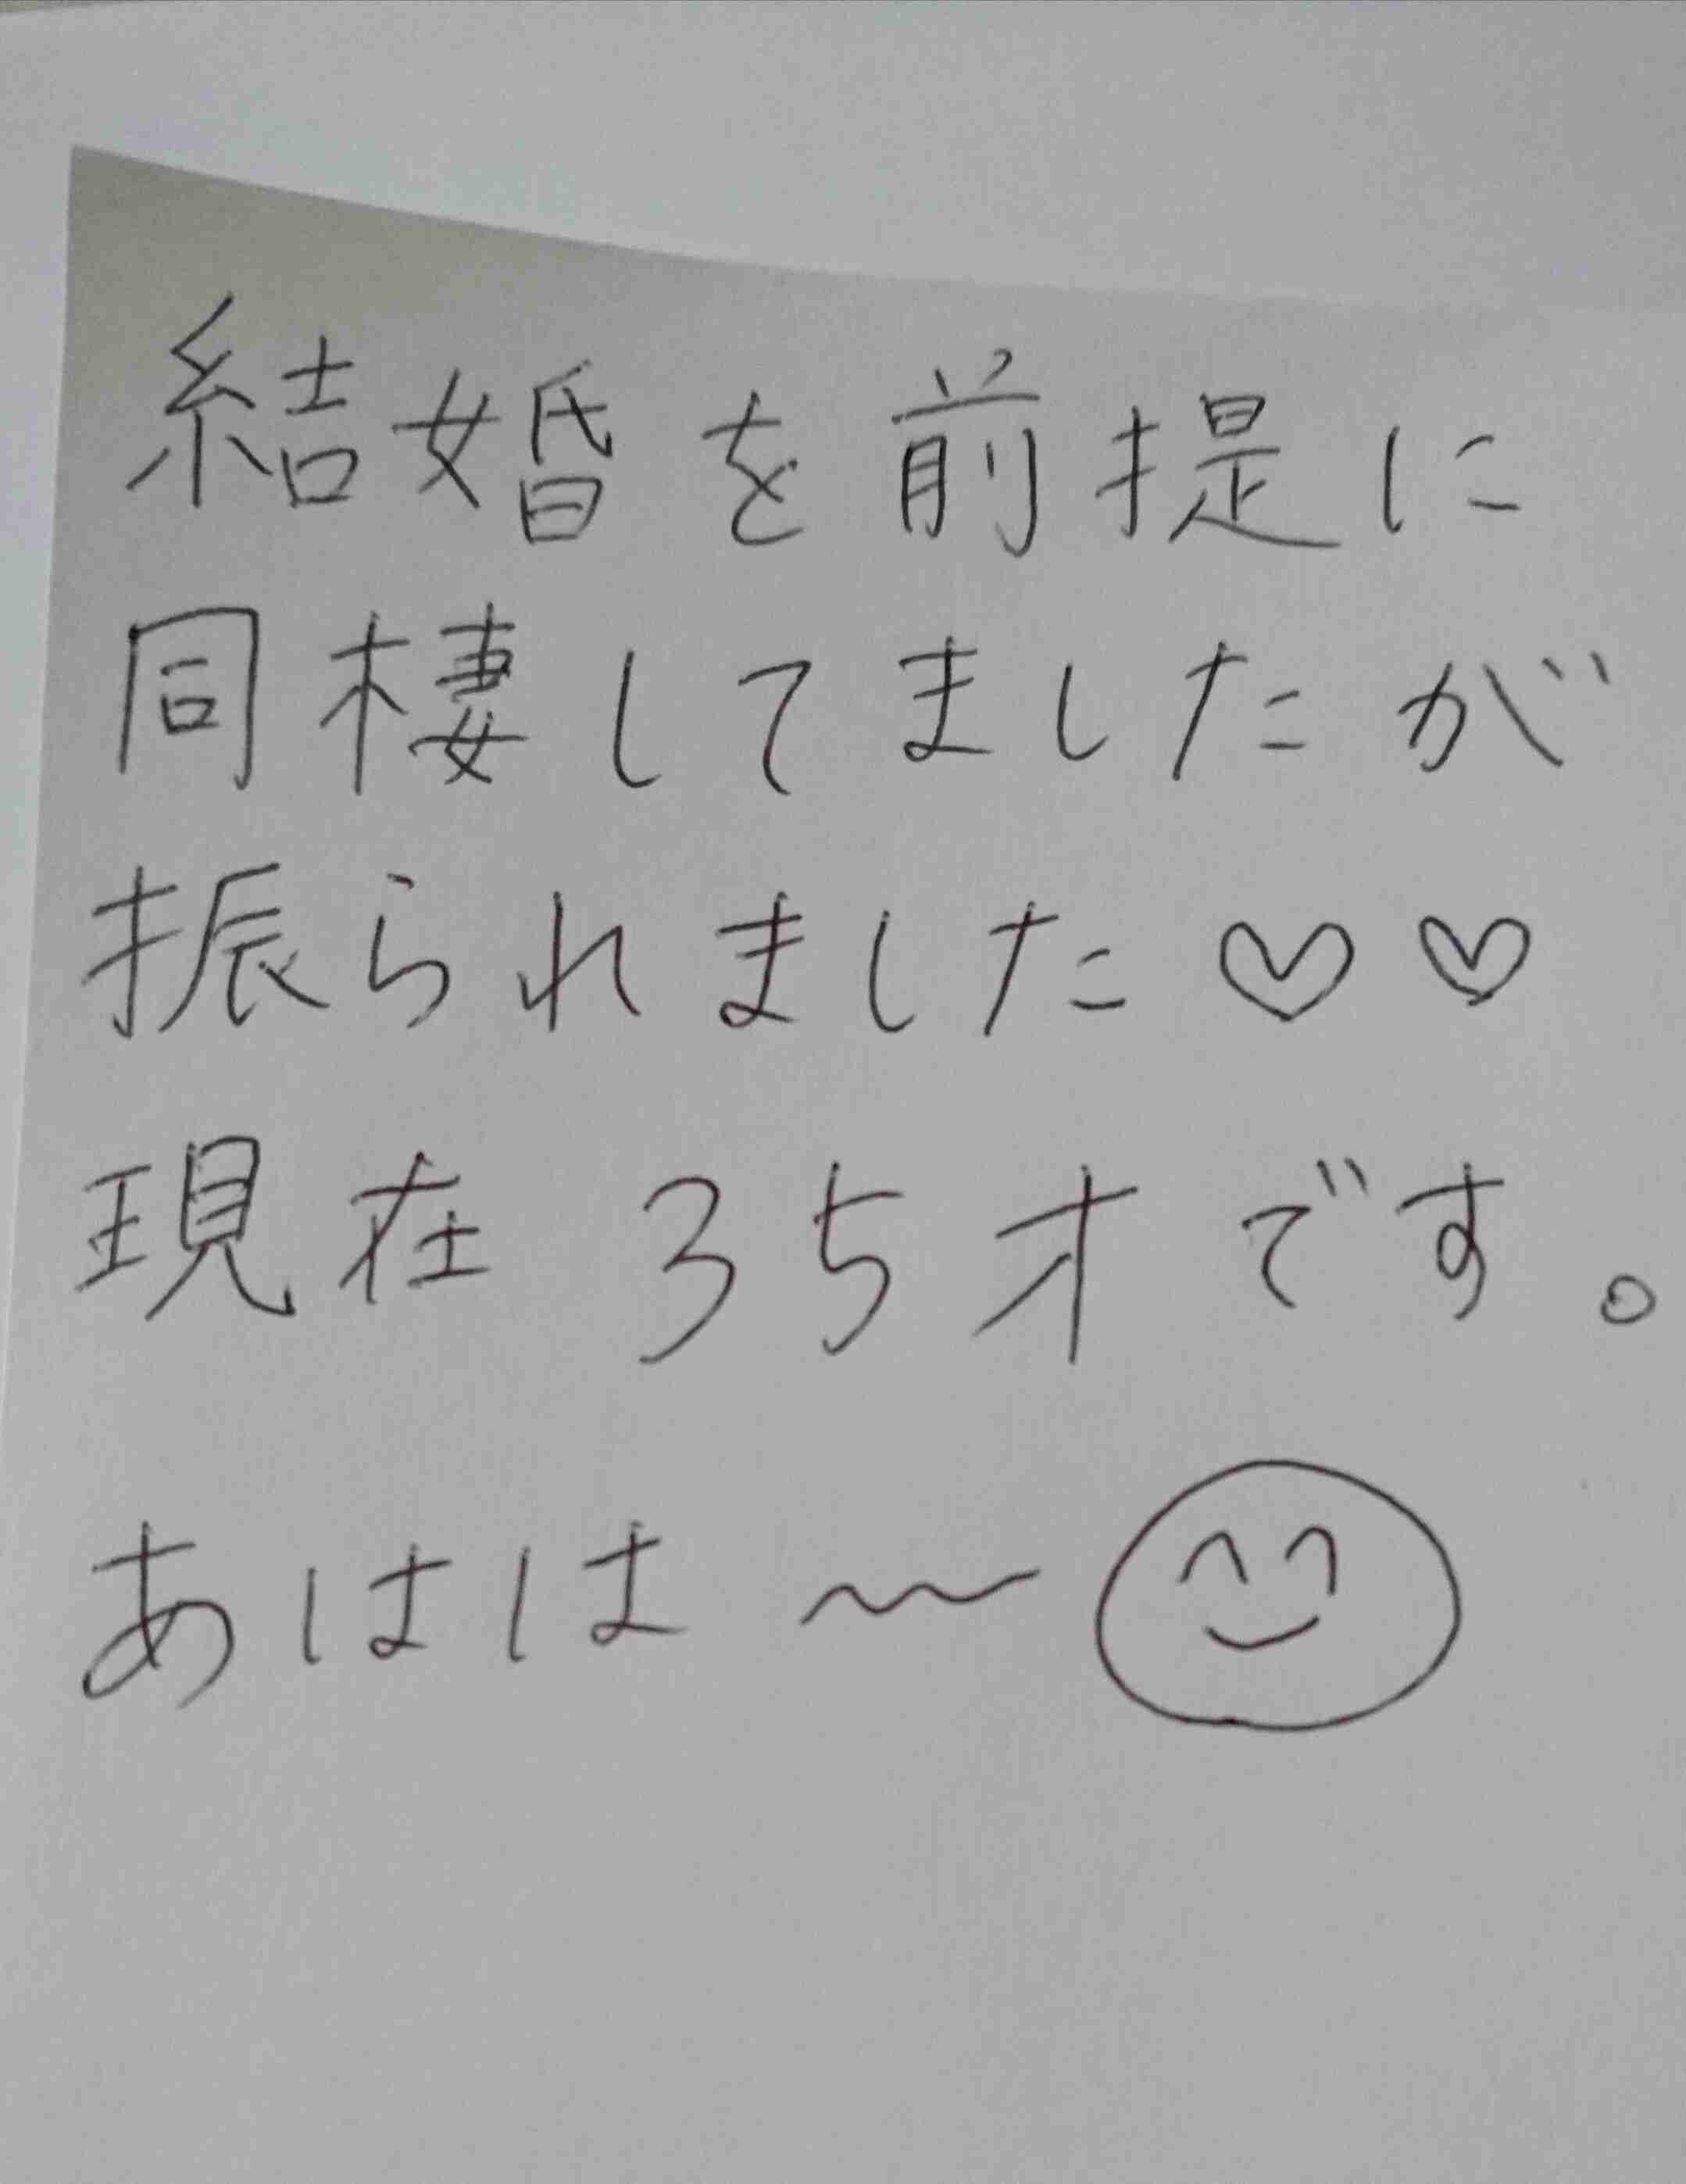 結婚を前提に
同棲してましたが
振られました♡♡
現在35才です。
あはは〜